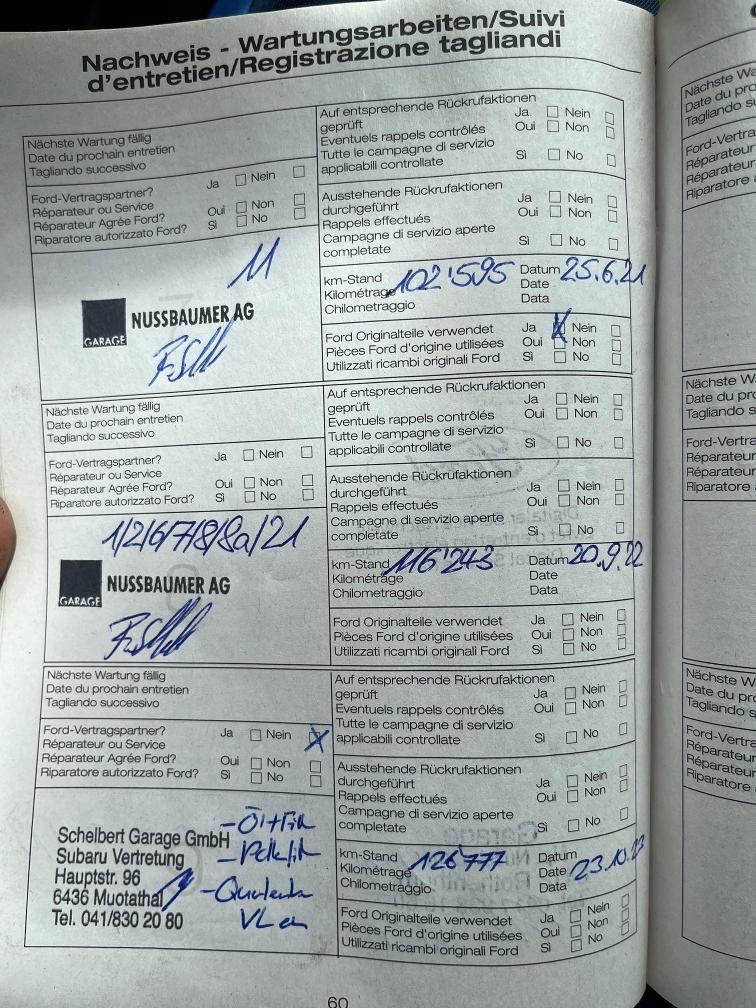 Nachweis - Wartungsarbeiten/Suivi
d'entretien/Registrazione tagliandi
Nächste Wartung fällig
Date du prochain entretien
Tagliando successivo
Ford-Vertragspartner? Ja Nein
Réparateur ou Service
Réparateur Agrée Ford? Oui Non
Riparatore autorizzato Ford? Sì No
11
GARAGE NUSSBAUMER AG
Auf entsprechende Rückrufaktionen
geprüft Ja Nein
Eventuels rappels contrôlés Oui Non
Tutte le campagne di servizio
applicabili controllate Sì No
Ausstehende Rückrufaktionen
durchgeführt Ja Nein
Rappels effectués Oui Non
Campagne di servizio aperte
completate Sì No
km-Stand 102'595 Datum 25.6.21
Kilométrage Date
Chilometraggio Data
Ford Originalteile verwendet Ja Nein
Pièces Ford d'origine utilisées Oui Non
Utilizzati ricambi originali Ford Sì No
Nächste Wartung fällig
Date du prochain entretien
Tagliando successivo
Ford-Vertragspartner? Ja Nein
Réparateur ou Service
Réparateur Agrée Ford? Oui Non
Riparatore autorizzato Ford? Sì No
1/2/6/7/8/8a/21
GARAGE NUSSBAUMER AG
Auf entsprechende Rückrufaktionen
geprüft Ja Nein
Eventuels rappels contrôlés Oui Non
Tutte le campagne di servizio
applicabili controllate Sì No
Ausstehende Rückrufaktionen
durchgeführt Ja Nein
Rappels effectués Oui Non
Campagne di servizio aperte
completate Sì No
km-Stand 116'243 Datum 20.9.22
Kilométrage Date
Chilometraggio Data
Ford Originalteile verwendet Ja Nein
Pièces Ford d'origine utilisées Oui Non
Utilizzati ricambi originali Ford Sì No
Nächste Wartung fällig
Date du prochain entretien
Tagliando successivo
Ford-Vertragspartner? Ja Nein
Réparateur ou Service
Réparateur Agrée Ford? Oui Non
Riparatore autorizzato Ford? Sì No
Schelbert Garage GmbH
Subaru Vertretung
Hauptstr. 96
6436 Muotathal
Tel. 041/830 20 80
Auf entsprechende Rückrufaktionen
geprüft Ja Nein
Eventuels rappels contrôlés Oui Non
Tutte le campagne di servizio
applicabili controllate Sì No
Ausstehende Rückrufaktionen
durchgeführt Ja Nein
Rappels effectués Oui Non
Campagne di servizio aperte
completate Sì No
km-Stand 126'777 Datum
Kilométrage Date 23.10.23
Chilometraggio Data
Ford Originalteile verwendet Ja Nein
Pièces Ford d'origine utilisées Oui Non
Utilizzati ricambi originali Ford Sì No
60